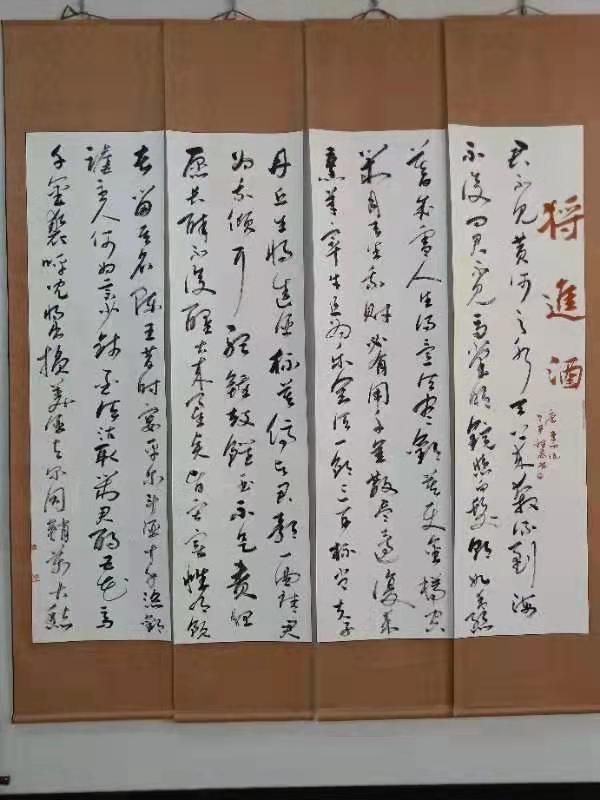 将進酒
君不見黄河之水天上来奔流到海
不復回君不見高堂明鏡白髮朝如青絲
暮成雪人生得意須盡歡莫使金樽空
對月天生我財必有用千金散盡還復来
烹羊宰牛且為樂會須一飲三百杯岑夫子
丹丘生將進酒杯莫停與君歌一曲請君
為我傾耳聽鐘鼓饌玉不足貴但
願長醉不復醒古来聖賢皆寂寞惟有飲
者留其名陳王昔時宴平樂斗酒十千恣歡
謔主人何为言少錢徑須沽取對君酌五花馬
千金裘呼兒將出換美酒與爾同銷萬古愁